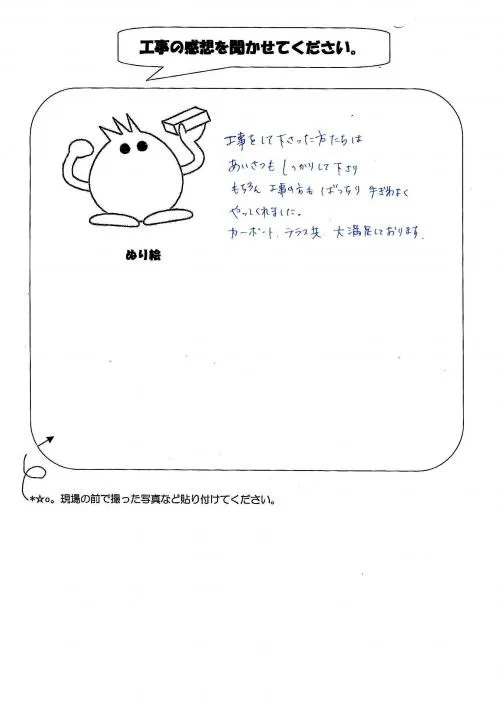 工事の感想を聞かせてください。
工事をして下さった方たちは
あいさつも しっかりして下さり
もちろん 工事の方も ばっちり 手ぎわよく
やってくれました。
カーポート、テラス共 大満足しております。
ぬり絵
*☆o。現場の前で撮った写真など貼り付けてください。